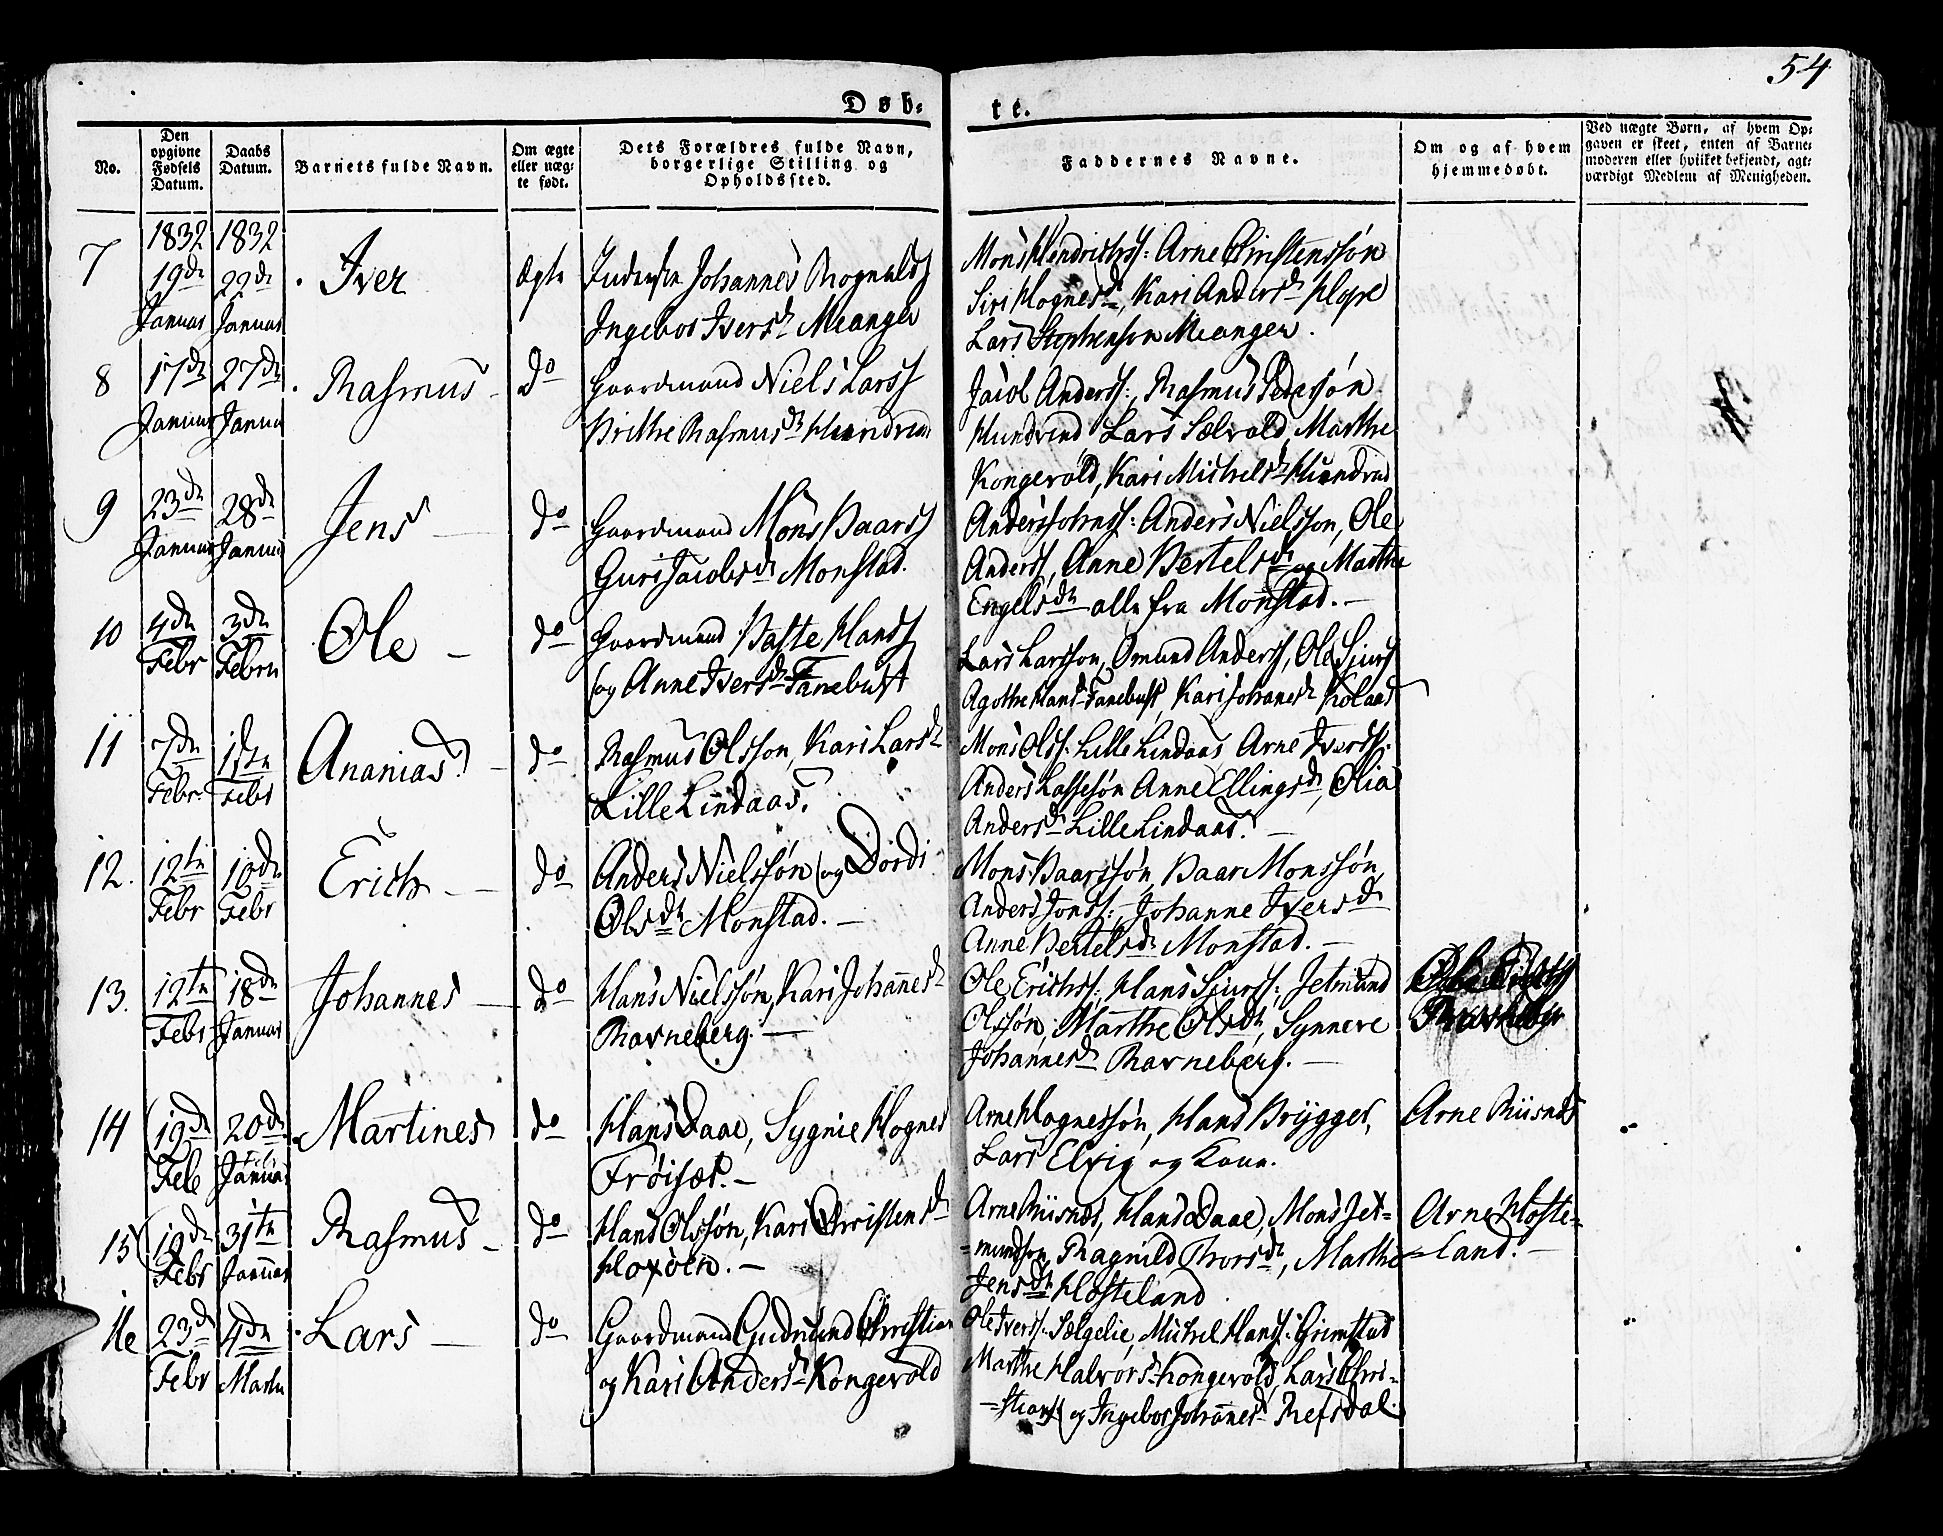 54
Døb= te.
No.
Den opgivne Fødsels Datum.
Daabs Datum.
Barnets fulde Navn.
Om ægte eller uægte født.
Dets Forældres fulde Navn, borgerlige Stilling og Opholdssted.
Faddernes Navne.
Om og af hvem hjemmedøbt.
Ved uægte Børn, af hvem Op=
gaven er skeet, enten af Barne=
moderen eller hvilket bekjendt, agt=
værdigt Medlem af Menigheden.
1832 1832
7 19de Januar 22de Januar Iver ægte Johannes Rognalds
Ingebor Iversdr Meanger
Mons Hendrichss: Arne Christenssøn
Siri Hognesdr, Kari Andersdr Hope
Lars Stephensøn Meanger.
8 17de Januar 27de Januar Rasmus do Gaardmand Niels Larss
Brithe Rasmusdr Hundven
Jacob Anderss:, Rasmus Pedersøn
Hundvend Lars Sælvold, Marthe
Kongevold, Kari Michelsdr Hundvend
9 23de Januar 28de Januar Jens do Gaardmand Mons Baarss
Guri Jacobsdr Monstad.
Anders Johnss: Anders Nielsson, Ole
Anderss, Anne Bertelsdr og Marthe
Engelsdr alle fra Monstad.
10 4de Febr 3de Febru Ole do Gaardmand Baste Hanss
og Anne Iversdr Fanebust
Lars Larsson, Omund Anderss, Ole Siurs
Agothe Hansd Fanebust, Kari Johanesdr Kolaas
11 7de Febr. Febr Ananias. do Rasmus Olsson, Kari Larsdr
Lille Lindaas.
Mons Olss: Lille Lindaas, Arne Iverss:
Anders Lassesøn Anne Ellingsdr, Olia
Andersdr Lille Lindaas.
12. 12te Febr Febr Erich do Anders Nielssøn og Dordi
Olsdr Monstad.
Mons Baarssøn, Baar Monssøn,
Anders Jonss:, Johanne Iversdr
Anne Bertelsdr Monstad.
13. 12te Febr 18de Januar Johannes do Hans Nielssøn, Kari Johannesdr
Ravneberg.
Ole Erichss:, Hans Siurss:, Jetmund
Olssøn, Marthe Olsdr, Synneve
Johannesdr Ravneberg.
14 19de Feb 20de Januar Martines do Hans Daae, Sygnie Hognes
Frøisæt.
Arne Hognessøn, Hans Brygger,
Lars Elvig og Kone.
Arne Riisnes
15 19de Febr 31te Januar Rasmus do Hans Olssøn, Kari Christensdr
Hoxøen.
Arne Riisnes, Hans Daae, Mons Jet=
=mundsøn, Ragnild Thorsdr, Marthe
Jensdr Hosteland.
Arne Hoste=
=land.
16 23de Febr 4de Martz Lars do Gaardmand Gudmund Christian
og Kari Andersdr Kongevold
Ole Iverss: Sælgelie, Michel Hanss: Grimstad
Marthe Halvorsdr Kongevold, Lars Chri=
=stians og Ingebor Johannesdr Refsdal.